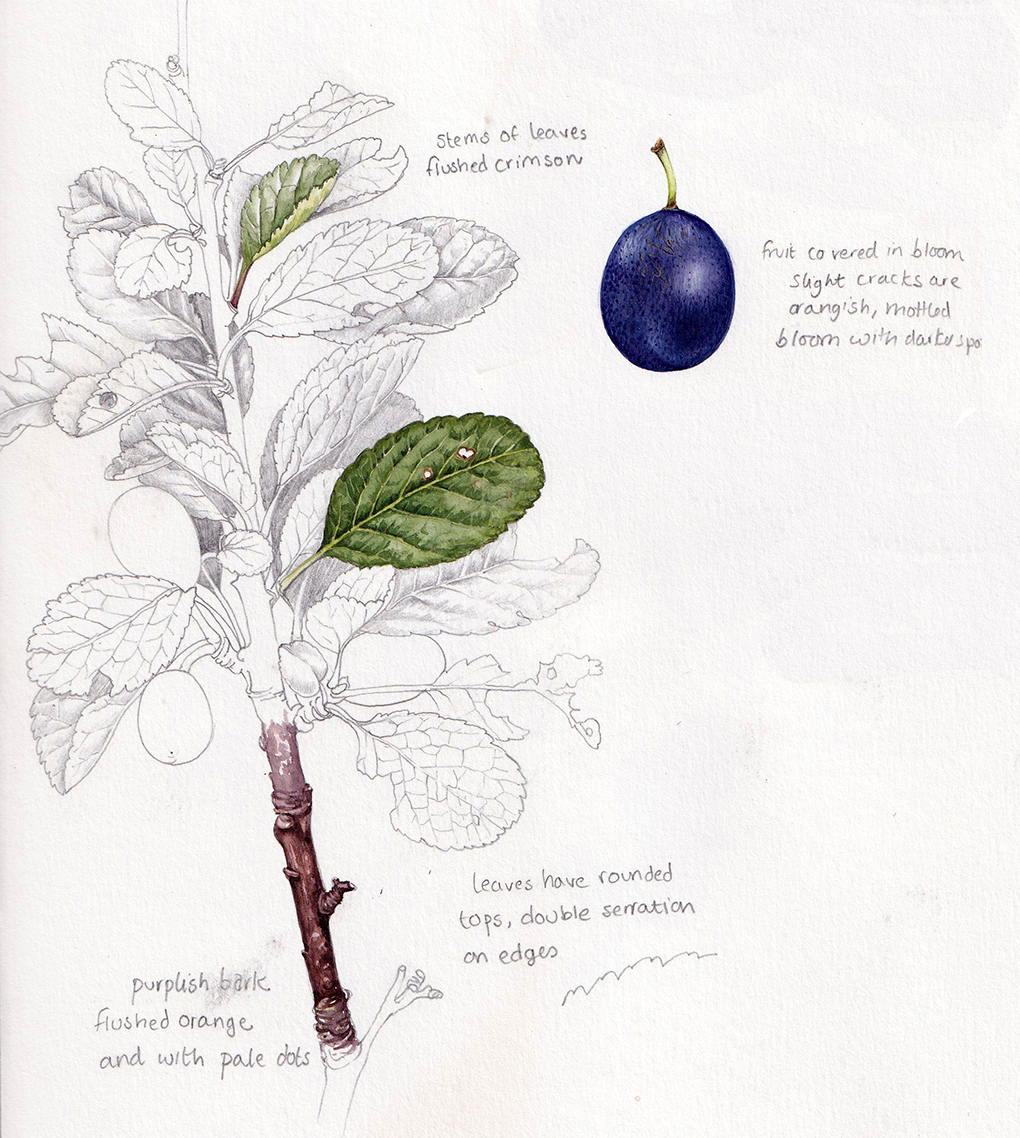 stems of leaves
flushed crimson
fruit covered in bloom
slight cracks are
orangish, mottled
bloom with dark spo
leaves have rounded
tops, double serration
on edges
purplish bark
flushed orange
and with pale dots